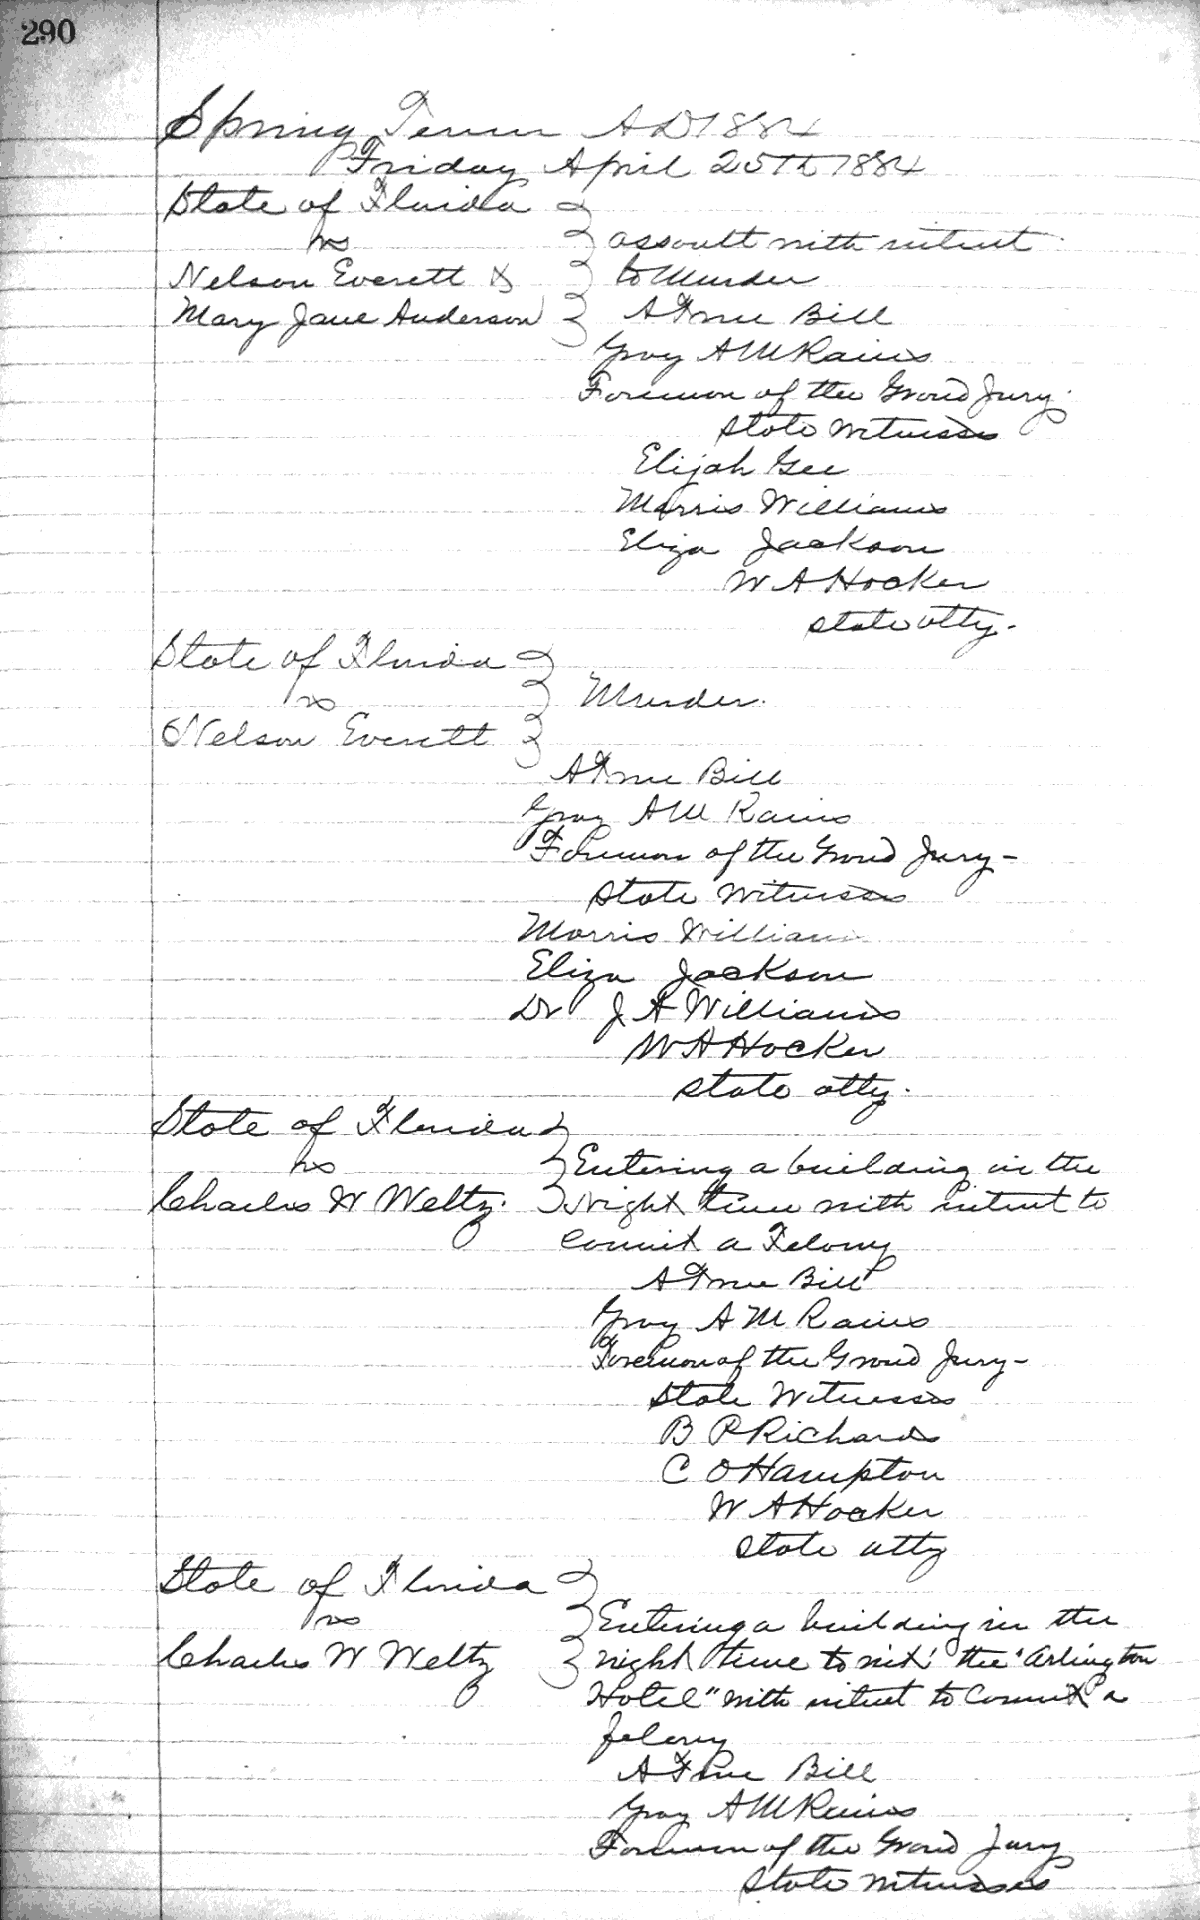 290
Spring Term AD 1884
Friday April 25th 1884
State of Florida
vs
Nelson Everett &
Mary Jane Anderson
assault with intent
to Murder
A True Bill
Gray A M Rains
Foreman of the Grand Jury
State Witnesses
Elijah Gee
Morris Williams
Eliza Jackson
W A Hocker
State Atty.
State of Florida
vs
Nelson Everett
Murder.
A True Bill
Gray A M Rains
Foreman of the Grand Jury -
State Witnesses
Morris Williams
Eliza Jackson
Dr J A Williams
W A Hocker
State Atty.
State of Florida
vs
Charles W Weltz.
Entering a building in the
Night time with intent to
Commit a Felony
A True Bill
Gray A M Rains
Foreman of the Grand Jury -
State Witnesses
B P Richards
C O Hampton
W A Hocker
State Atty
State of Florida
vs
Charles W Weltz
Entering a building in the
night time to wit' the "Arlington
Hotel" with intent to Commit a
felony
A True Bill
Gray A M Rains
Foreman of the Grand Jury
State Witnesses